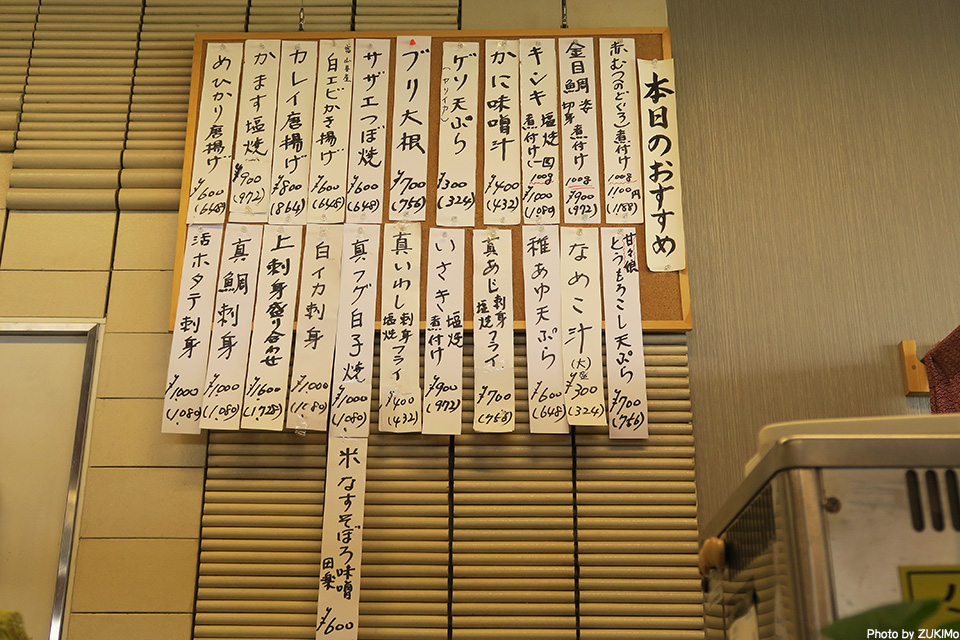 本日のおすすめ
赤むつ(のどぐろ)煮付け 100g 1100円 (1188)
金目鯛 姿 切身 煮付け 100g ¥900 (972)
キンキ 塩焼 煮付け (一匹) 100g ¥1000 (1080)
かに味噌汁 ¥400 (432)
ゲソ天ぷら (ヤリイカ) ¥300 (324)
ブリ大根 ¥700 (756)
サザエつぼ焼 ¥600 (648)
富山県産 白エビかき揚げ ¥600 (648)
カレイ唐揚げ ¥800 (864)
かます塩焼 ¥900 (972)
めひかり唐揚げ ¥600 (648)
甘々娘 とうもろこし天ぷら ¥700 (756)
なめこ汁 (大) ¥300 (324)
稚あゆ天ぷら ¥600 (648)
真あじ 刺身 フライ 塩焼 ¥700 (756)
いさき 塩焼 煮付け ¥900 (972)
真いわし 刺身 フライ 塩焼 ¥400 (432)
真フグ白子焼 ¥1000 (1080)
白イカ刺身 ¥1000 (1080)
上刺身盛り合わせ ¥1600 (1728)
真鯛刺身 ¥1000 (1080)
活ホタテ刺身 ¥1000 (1080)
米なすそぼろ味噌田楽 ¥600
Photo by ZUKIMo